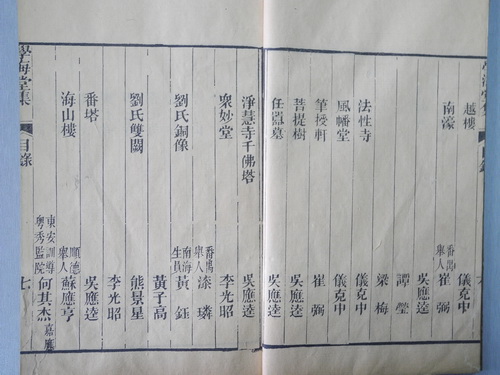 越樓 儀克中
南濠 番禺舉人 崔弼
吳應逵
譚瑩
梁梅
法性寺 儀克中
風幡堂 儀克中
筆授軒 崔弼
菩提樹 吳應逵
任嚻墓 吳應逵
淨慧寺千佛塔 吳應逵
眾妙堂 李光昭
番禺舉人 漆璘
劉氏銅像 南海生員 黃鈺
黃子高
劉氏雙闕 熊景星
李光昭
番塔 吳應逵
海山樓 順德舉人 蘇應亨
東安訓導粵秀監院 何其杰 嘉應
學海堂集 目錄 七